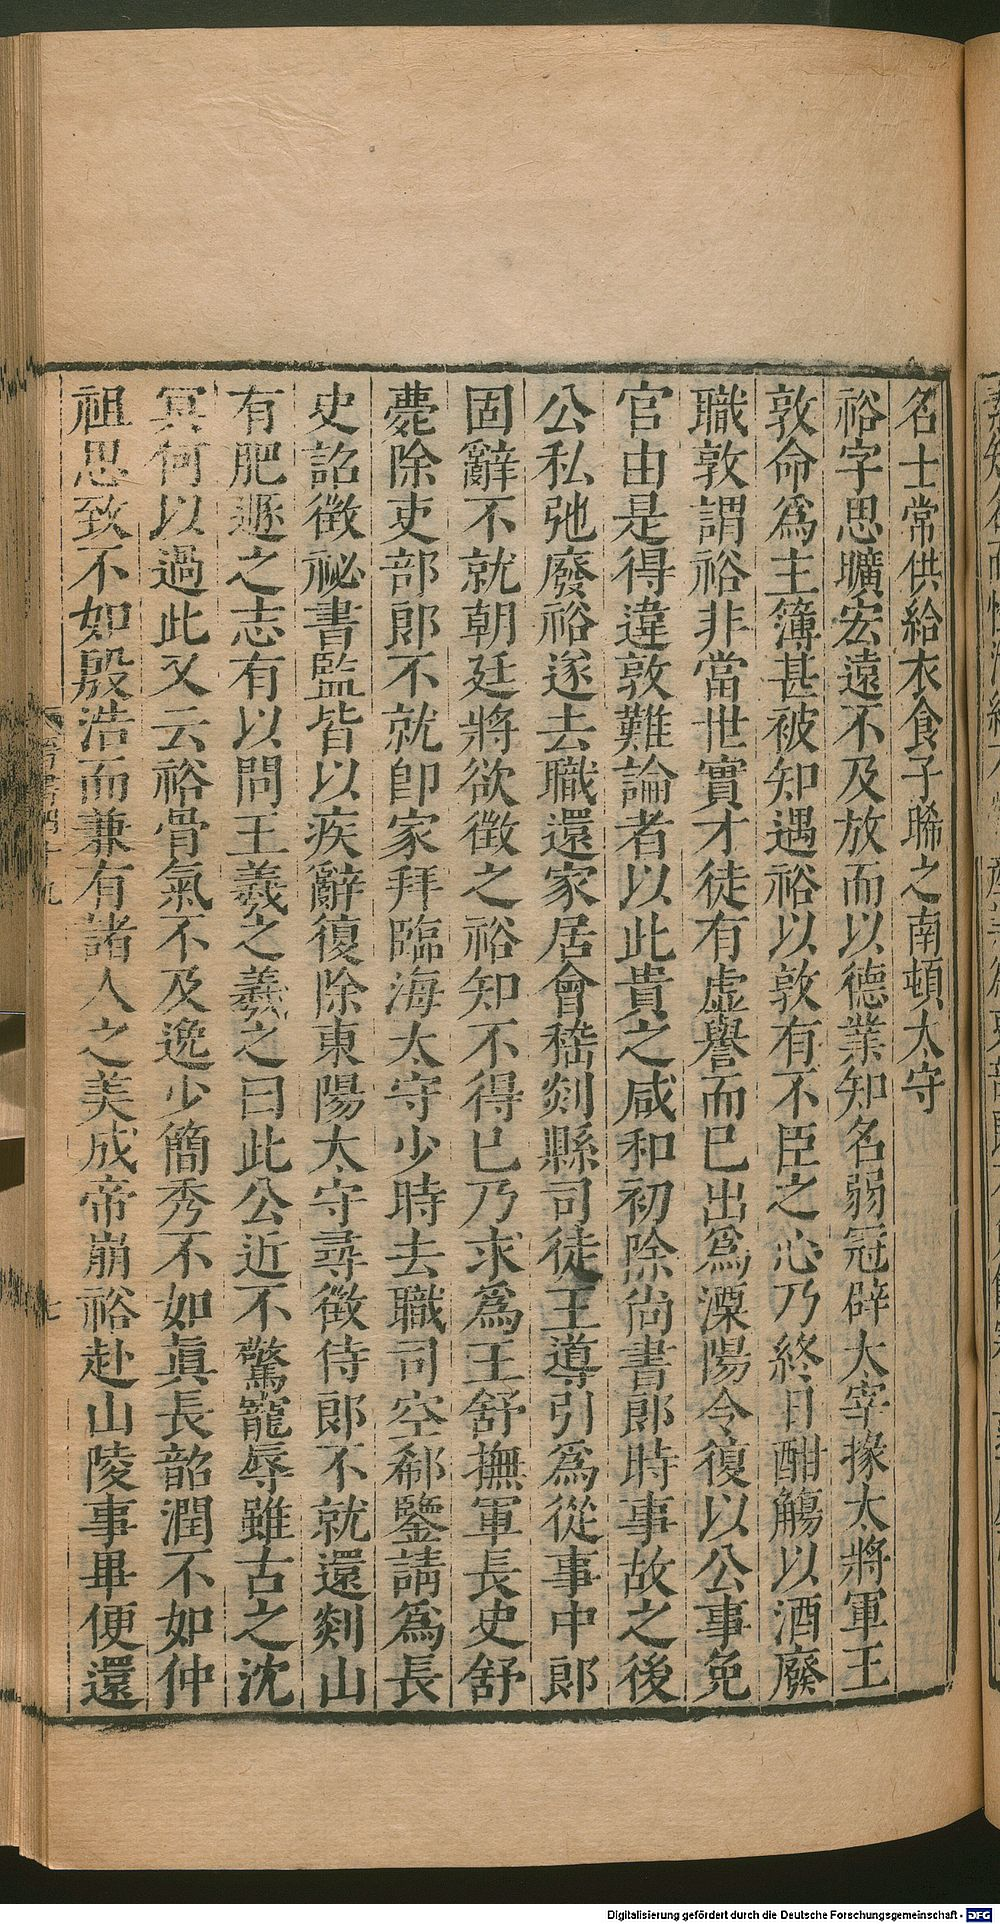 名士常供給衣食子聮之南頓太守
裕字思曠宏遠不及放而以德業知名弱冠辟太宰掾大將軍王
敦命爲主簿甚被知遇裕以敦有不臣之心乃終日酣觴以酒廢
職敦謂裕非當世實才徒有虛譽而已出爲溧陽令復以公事免
官由是得違敦難論者以此貴之咸和初除尚書郎時事故之後
公私弛廢裕遂去職還家居會稽剡縣司徒王導引爲從事中郎
固辭不就朝廷將欲徵之裕知不得已乃求爲王舒撫軍長史舒
薨除吏部郎不就卽家拜臨海太守少時去職司空郗鑒請爲長
史詔徵祕書監皆以疾辭復除東陽太守尋徵侍郎不就還剡山
有肥遯之志有以問王羲之羲之曰此公近不驚寵辱雖古之沈
冥何以過此又云裕骨氣不及逸少簡秀不如眞長韶潤不如仲
祖思致不如殷浩而兼有諸人之美成帝崩裕赴山陵事畢便還
七
Digitalisierung gefördert durch die Deutsche Forschungsgemeinschaft - DFG